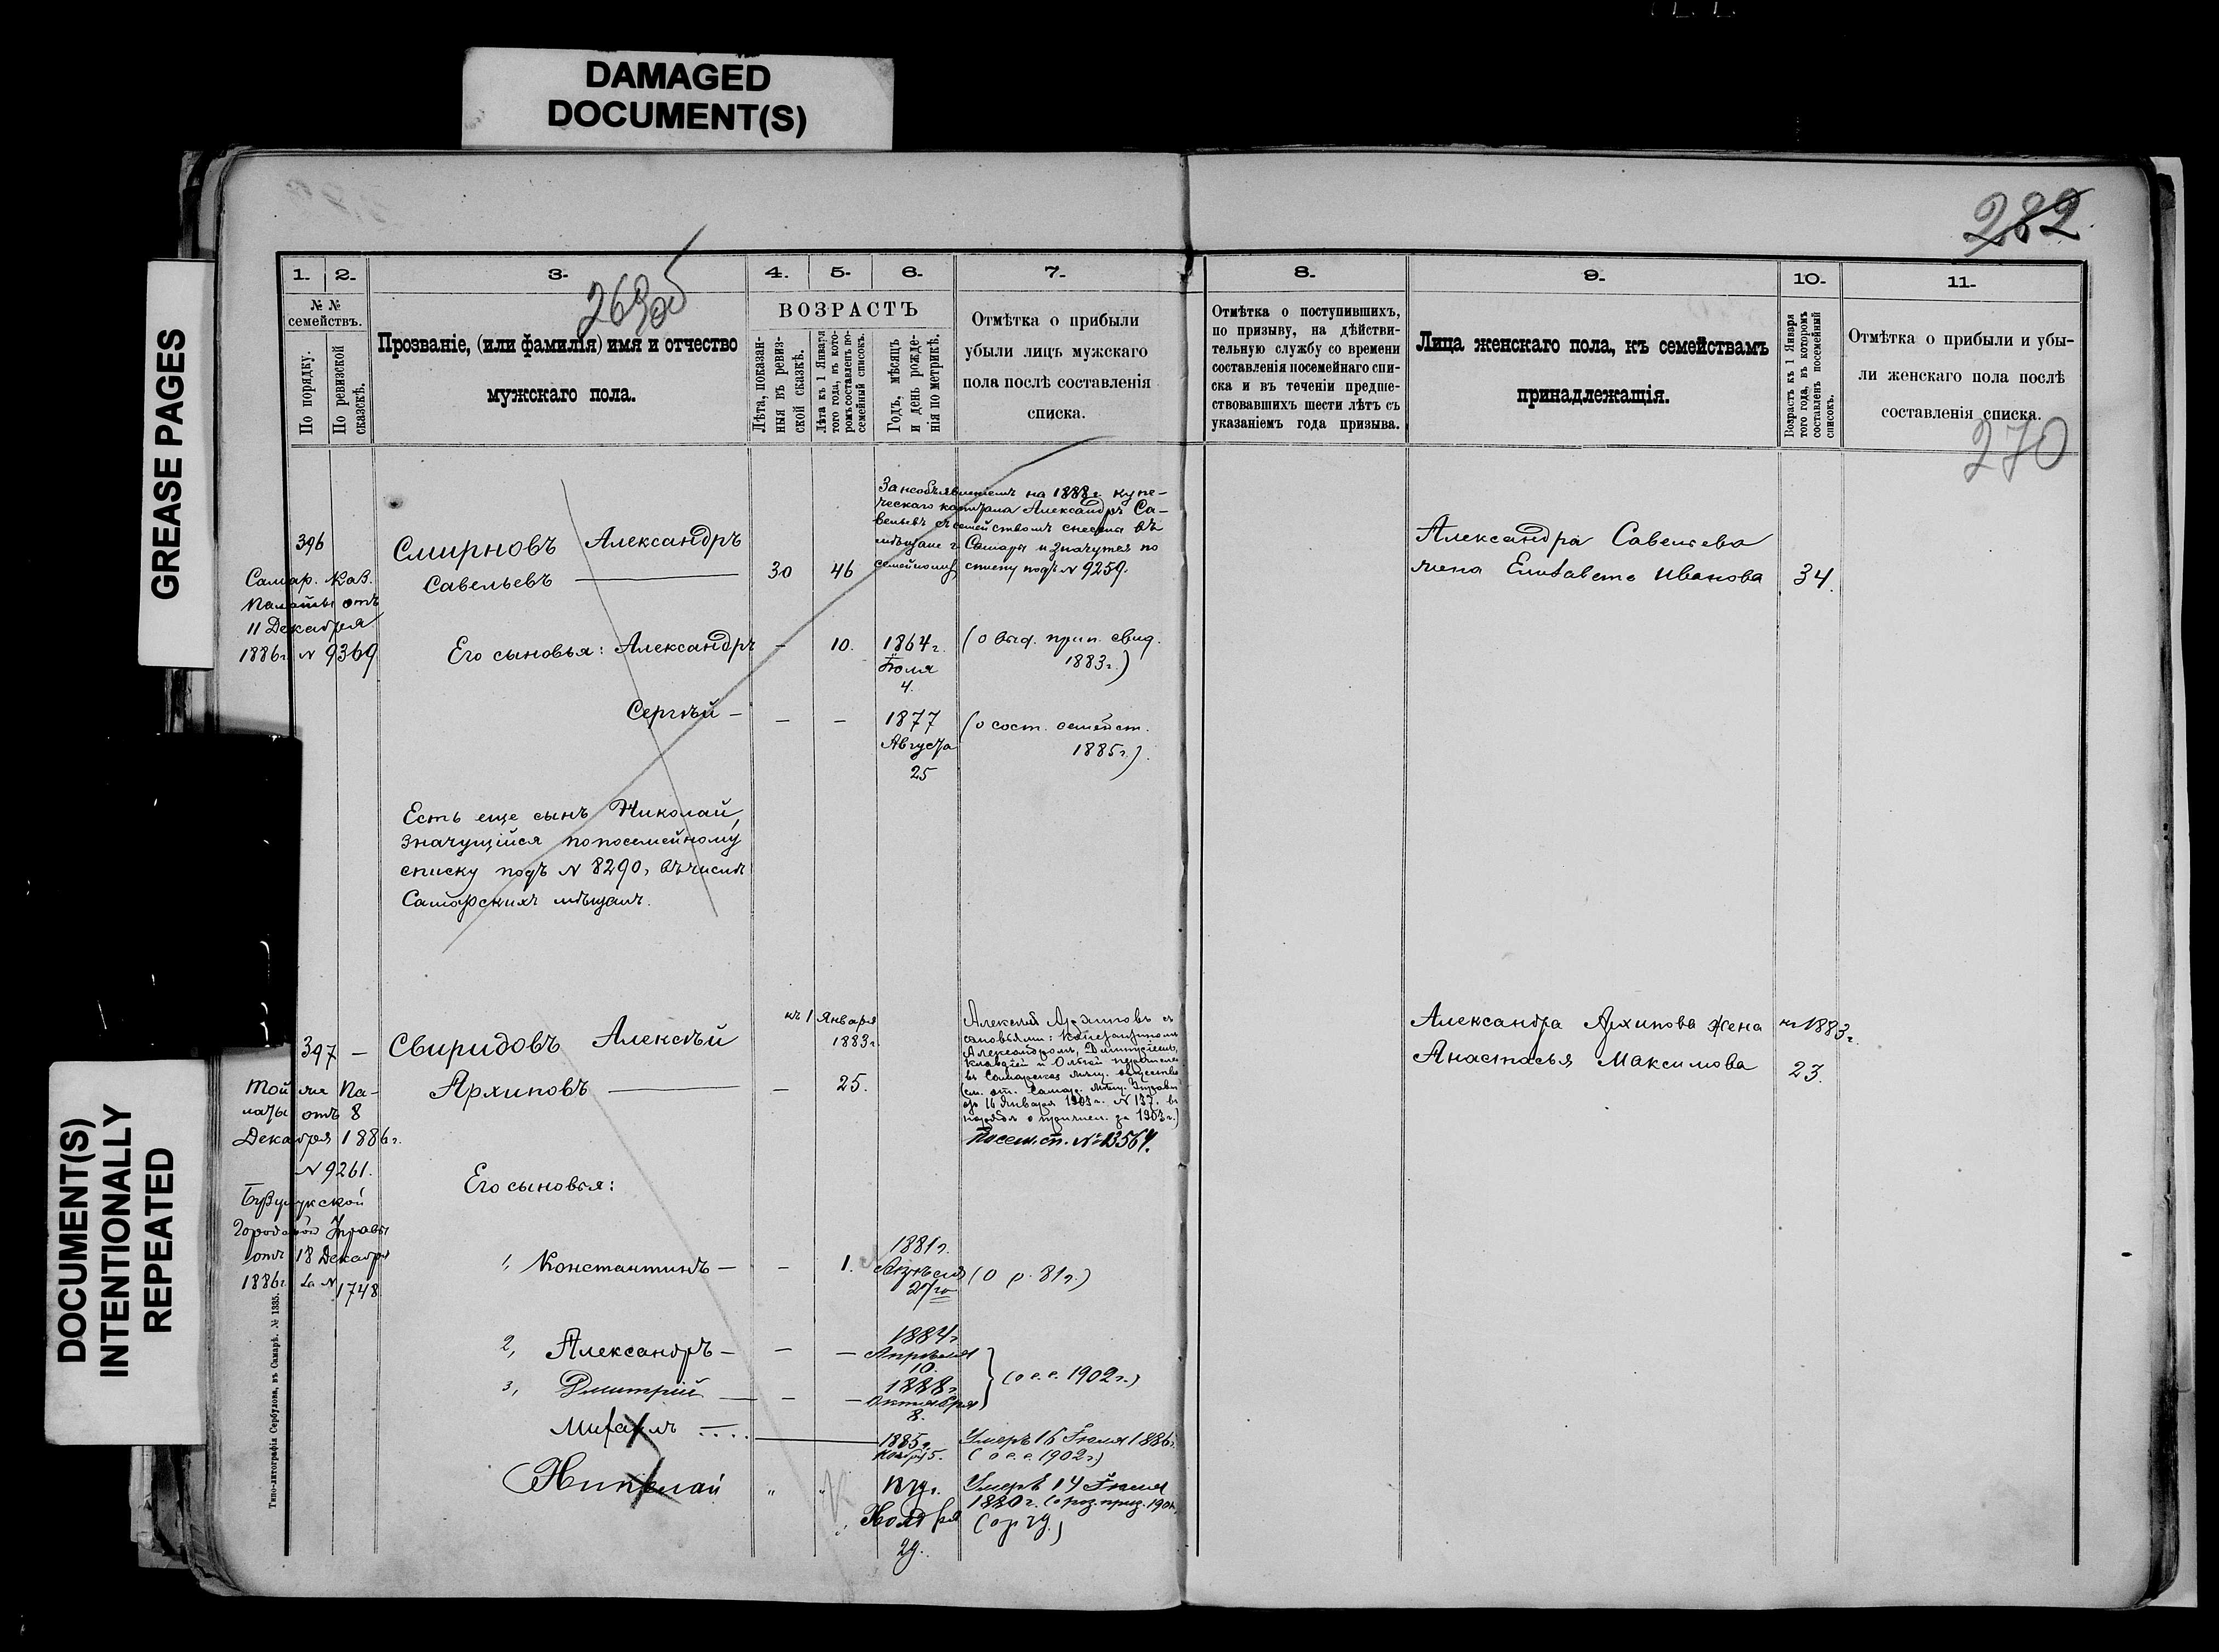 DAMAGED
DOCUMENT(S)
GREASE PAGES
DOCUMENT(S)
INTENTIONALLY
REPEATED
282
269об
270
1. 2. 3. 4. 5. 6. 7. 8. 9. 10. 11.
№ №
семействъ.
По порядку.
По ревизской
сказкѣ.
Прозваніе, (или фамилія) имя и отчество
мужскаго пола.
ВОЗРАСТЪ
Лѣта, показан-
ныя въ ревиз-
ской сказкѣ.
Лѣта къ 1 Января
того года, въ кото-
ромъ составленъ по-
семейный списокъ.
Годъ, мѣсяцъ
и день рожде-
нія по метрикѣ.
Отмѣтка о прибыли
убыли лицъ мужскаго
пола послѣ составленія
списка.
Отмѣтка о поступившихъ,
по призыву, на дѣйстви-
тельную службу со времени
составленія посемейнаго спи-
ска и въ теченіи предше-
ствовавшихъ шести лѣтъ съ
указаніемъ года призыва.
Лица женскаго пола, къ семействамъ
принадлежащія.
Возрастъ къ 1 Января
того года, въ которомъ
составленъ посемейный
списокъ.
Отмѣтка о прибыли и убы-
ли женскаго пола послѣ
составленія списка.
396
Самар. Каз.
Палаты отъ
11 Декабря
1886г. № 9369
Смирновъ Александръ
Савельевъ
30 46
За необъявленіемъ на 1888г. купе-
ческаго капитала Александръ Са-
вельевъ съ семействомъ въ
мѣщане г. Самары и значутся по
семейному списку подъ № 9259.
Александра Савельева
жена Елизавета Иванова 34.
Его сыновья: Александръ - 10. 1864г.
Іюля
4.
(о выд. прип. свид.
1883г.)
Сергѣй - - - 1877
Августа
25
(о сост. семейст.
1885г.).
Есть еще сынъ Николай,
значущійся по посемейному
списку подъ № 8290, въ числѣ
Самарскихъ мѣщанъ.
397 -
Той же Па-
латы отъ 8
Декабря 1886г.
№ 9261.
Бузулукской
Городской Управы
отъ 18 Декабря
1886г. за №
1748
Свиридовъ Алексѣй
Архиповъ - 25.
къ 1 Января
1883г.
Алексѣй Архиповъ съ
сыновьями: Константиномъ,
Александромъ, Дмитріемъ,
Клавдіей и Ольгой
въ Самарское мѣщ. общество
Самар. мѣщ. Управы
16 Января 1903г. № 137. въ
о причислен. за 1903г.)
Посем. сп. № 13564.
Александра Архипова жена
Анастасья Максимова
къ 1883г.
23.
Его сыновья:
1, Константинъ - - 1. 1881г.
27го
(о р. 81г.)
2, Александръ - - - 1884г.
Апрѣля
10.
3, Дмитрій - - - 1888г.
Октября
8.
(о с. с. 1902г.)
Михаилъ
1885г.
Ноябр. 5.
Умеръ 16 Іюля 1886г.
(о с. с. 1902г.)
Николай " " 1879г.
Ноября
29.
Умеръ 14 Іюля
1880г.
Типо-литографія Сербулова, въ Самарѣ. № 1335.